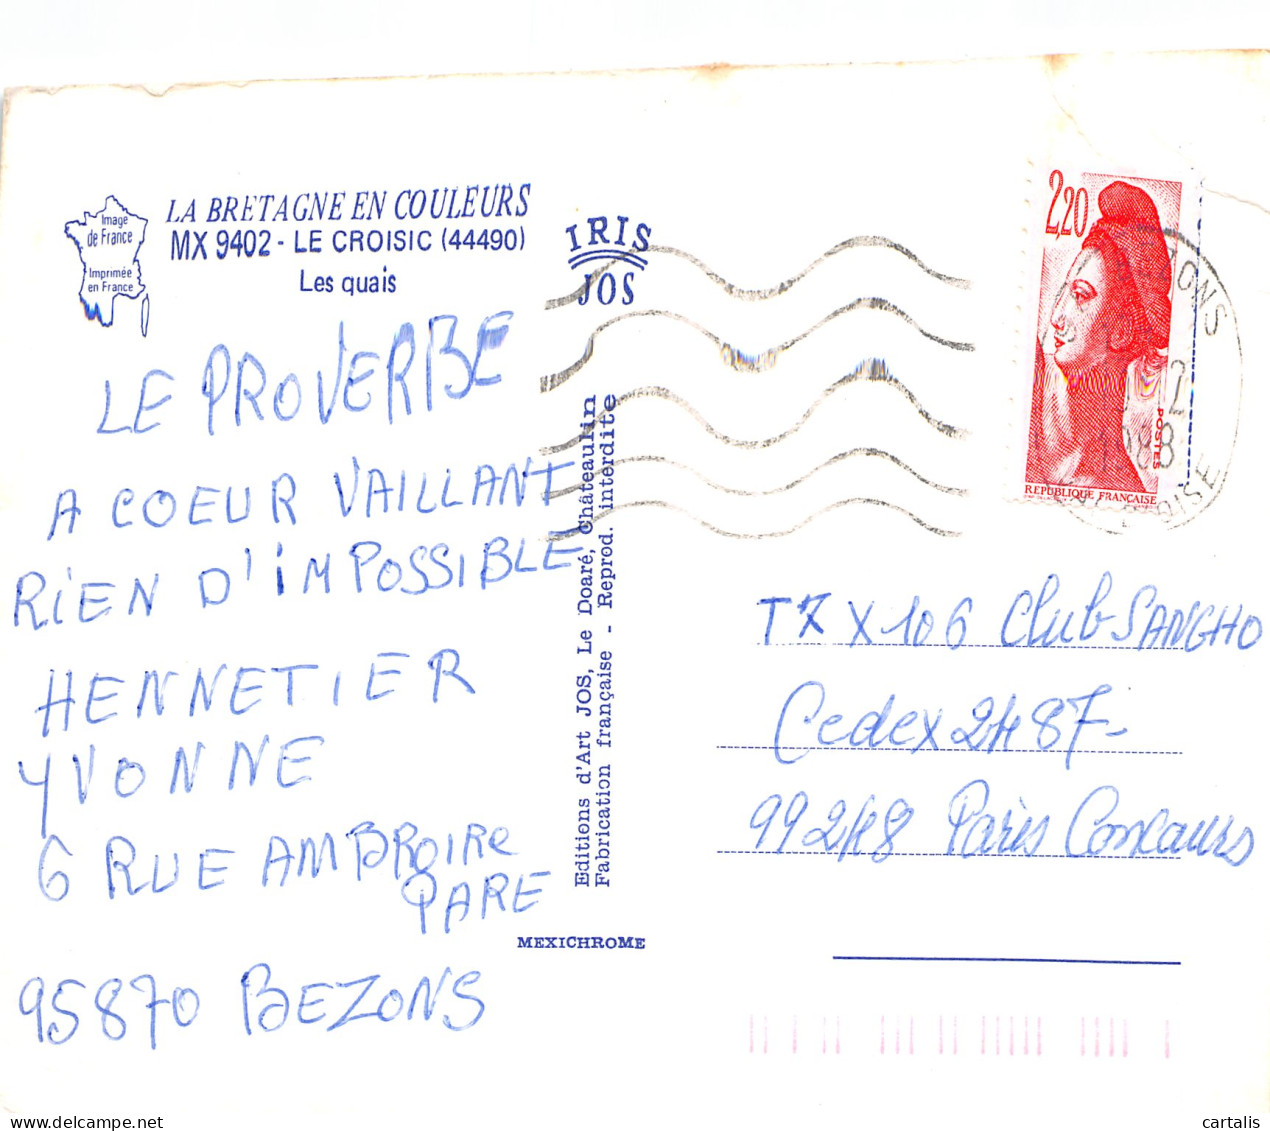 Image
de France
Imprimée
en France
LA BRETAGNE EN COULEURS
MX 9402 - LE CROISIC (44490)
Les quais
IRIS
JOS
LE PROVERBE
A COEUR VAILLANT
RIEN D'IMPOSSIBLE
HENNETIER
YVONNE
6 RUE AMBROIRE
PARE
95870 BEZONS
Editions d'Art JOS, Le Doaré, Châteaulin
Fabrication française - Reprod. interdite
MEXICHROME
2,20
POSTES
REPUBLIQUE FRANÇAISE
2
1988
OISE
X 106 Club SANGHO
Cedex 2487
Paris Concours
cartalis